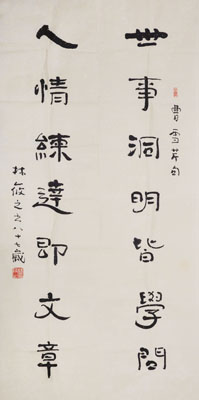 曹雪芹句
世事洞明皆學問
人情練達即文章
林筱之之八十七歲